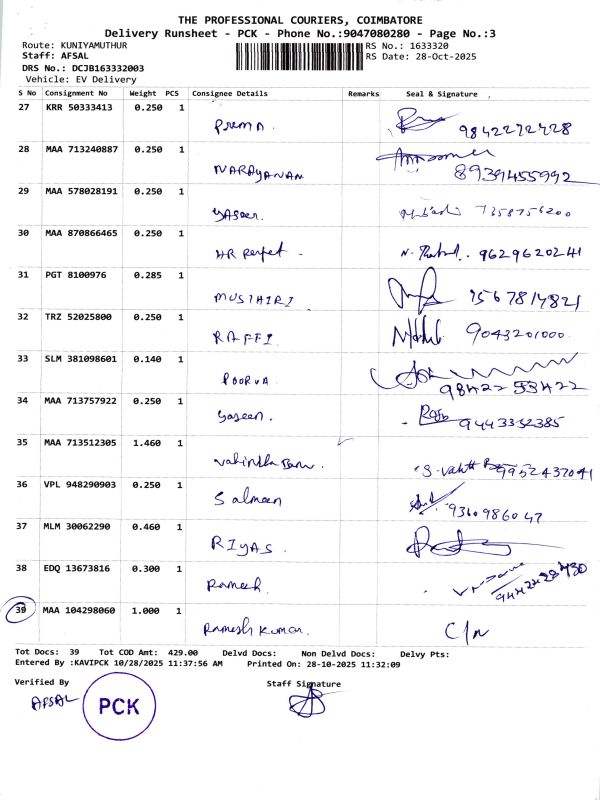 THE PROFESSIONAL COURIERS, COIMBATORE
Delivery Runsheet - PCK - Phone No.:9047080280 - Page No.:3
Route: KUNIYAMUTHUR RS No.: 1633320
Staff: AFSAL RS Date: 28-Oct-2025
DRS No.: DCJB163332003
Vehicle: EV Delivery
S No Consignment No Weight PCS Consignee Details Remarks Seal & Signature
27 KRR 50333413 0.250 1
Prema 9842272728
28 MAA 713240887 0.250 1
NARAYANAN 8939455992
29 MAA 578028191 0.250 1
yaseer. 7358756200
30 MAA 870866465 0.250 1
HR Perfect. 9629620241
31 PGT 8100976 0.285 1
MUSTHIRI 7567817821
32 TRZ 52025800 0.250 1
RAFFI. 9043201000.
33 SLM 381098601 0.140 1
POORVA 98422 53422
34 MAA 713757922 0.250 1
yaseen. 9443332385
35 MAA 713512305 1.460 1
Banu. 9952437041
36 VPL 948290903 0.250 1
Salmaan 9360986047
37 MLM 30062290 0.460 1
RIYAS.
38 EDQ 13673816 0.300 1
Ramesh.
39 MAA 104298060 1.000 1
Ramesh Kumar. C/n
Tot Docs: 39 Tot COD Amt: 429.00 Delvd Docs: Non Delvd Docs: Delvy Pts:
Entered By :KAVIPCK 10/28/2025 11:37:56 AM Printed On: 28-10-2025 11:32:09
Verified By Staff Signature
AFSAL PCK